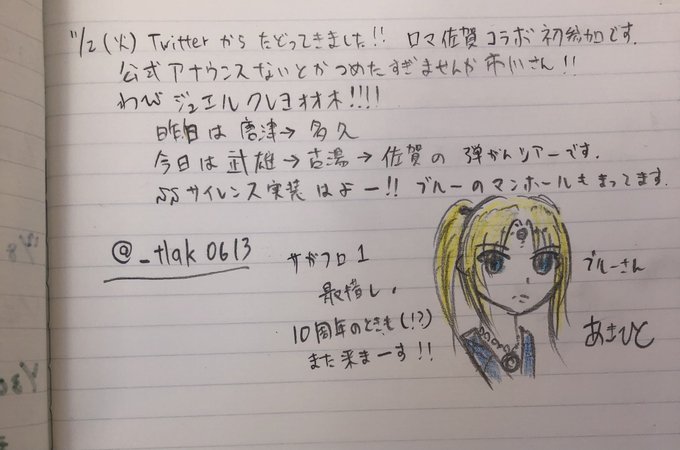 11/2(火) Twitterから たどってきました!! ロマ佐賀コラボ初参加です。
公式アナウンスないとかつめたすぎませんか市川さん!!
わび ジュエルクレヨオオオ!!!!
昨日は 唐津→多久
今日は 武雄→古湯→佐賀の 弾がんツアーです。
SSサイレンス実装はよー!! ブルーのマンホールもまってます。
@_tlak0613
サガフロ1
最推し。
10周年のときも(!?)
また来まーす!!
ブルーさん
あきひと